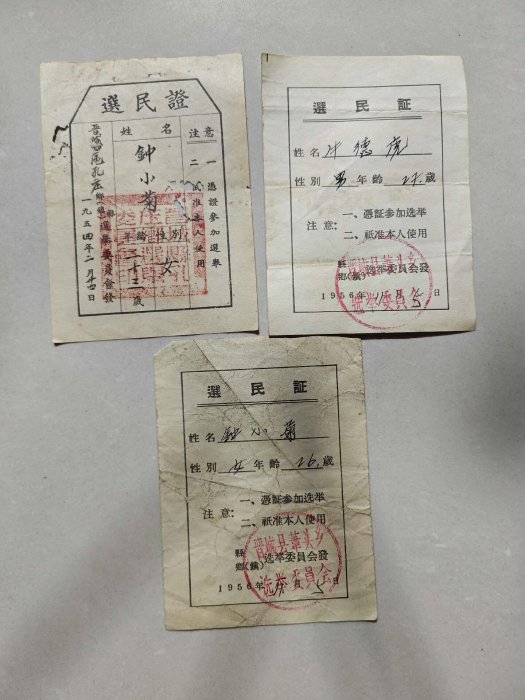 選民證
姓名
鈡小菊
性別
女
年齡
二十三歲
注意
一 憑證參加選舉
二 祇准本人使用
選舉委員會發
一九五四年二月十四日
選民証
姓名 牛德虎
性別 男 年齡 歲
注意：
一、憑証参加选举
二、祇准本人使用
縣
鄉(鎮) 选举委員会發
1956年11月5日
晋城县華头乡
选举委員会
選民証
姓名 鈡小菊
性別 女 年齡 26 歲
注意：
一、憑証参加选举
二、祇准本人使用
縣
鄉(鎮) 选举委員会發
1956年 月5日
晋城县華头乡
选举委員会